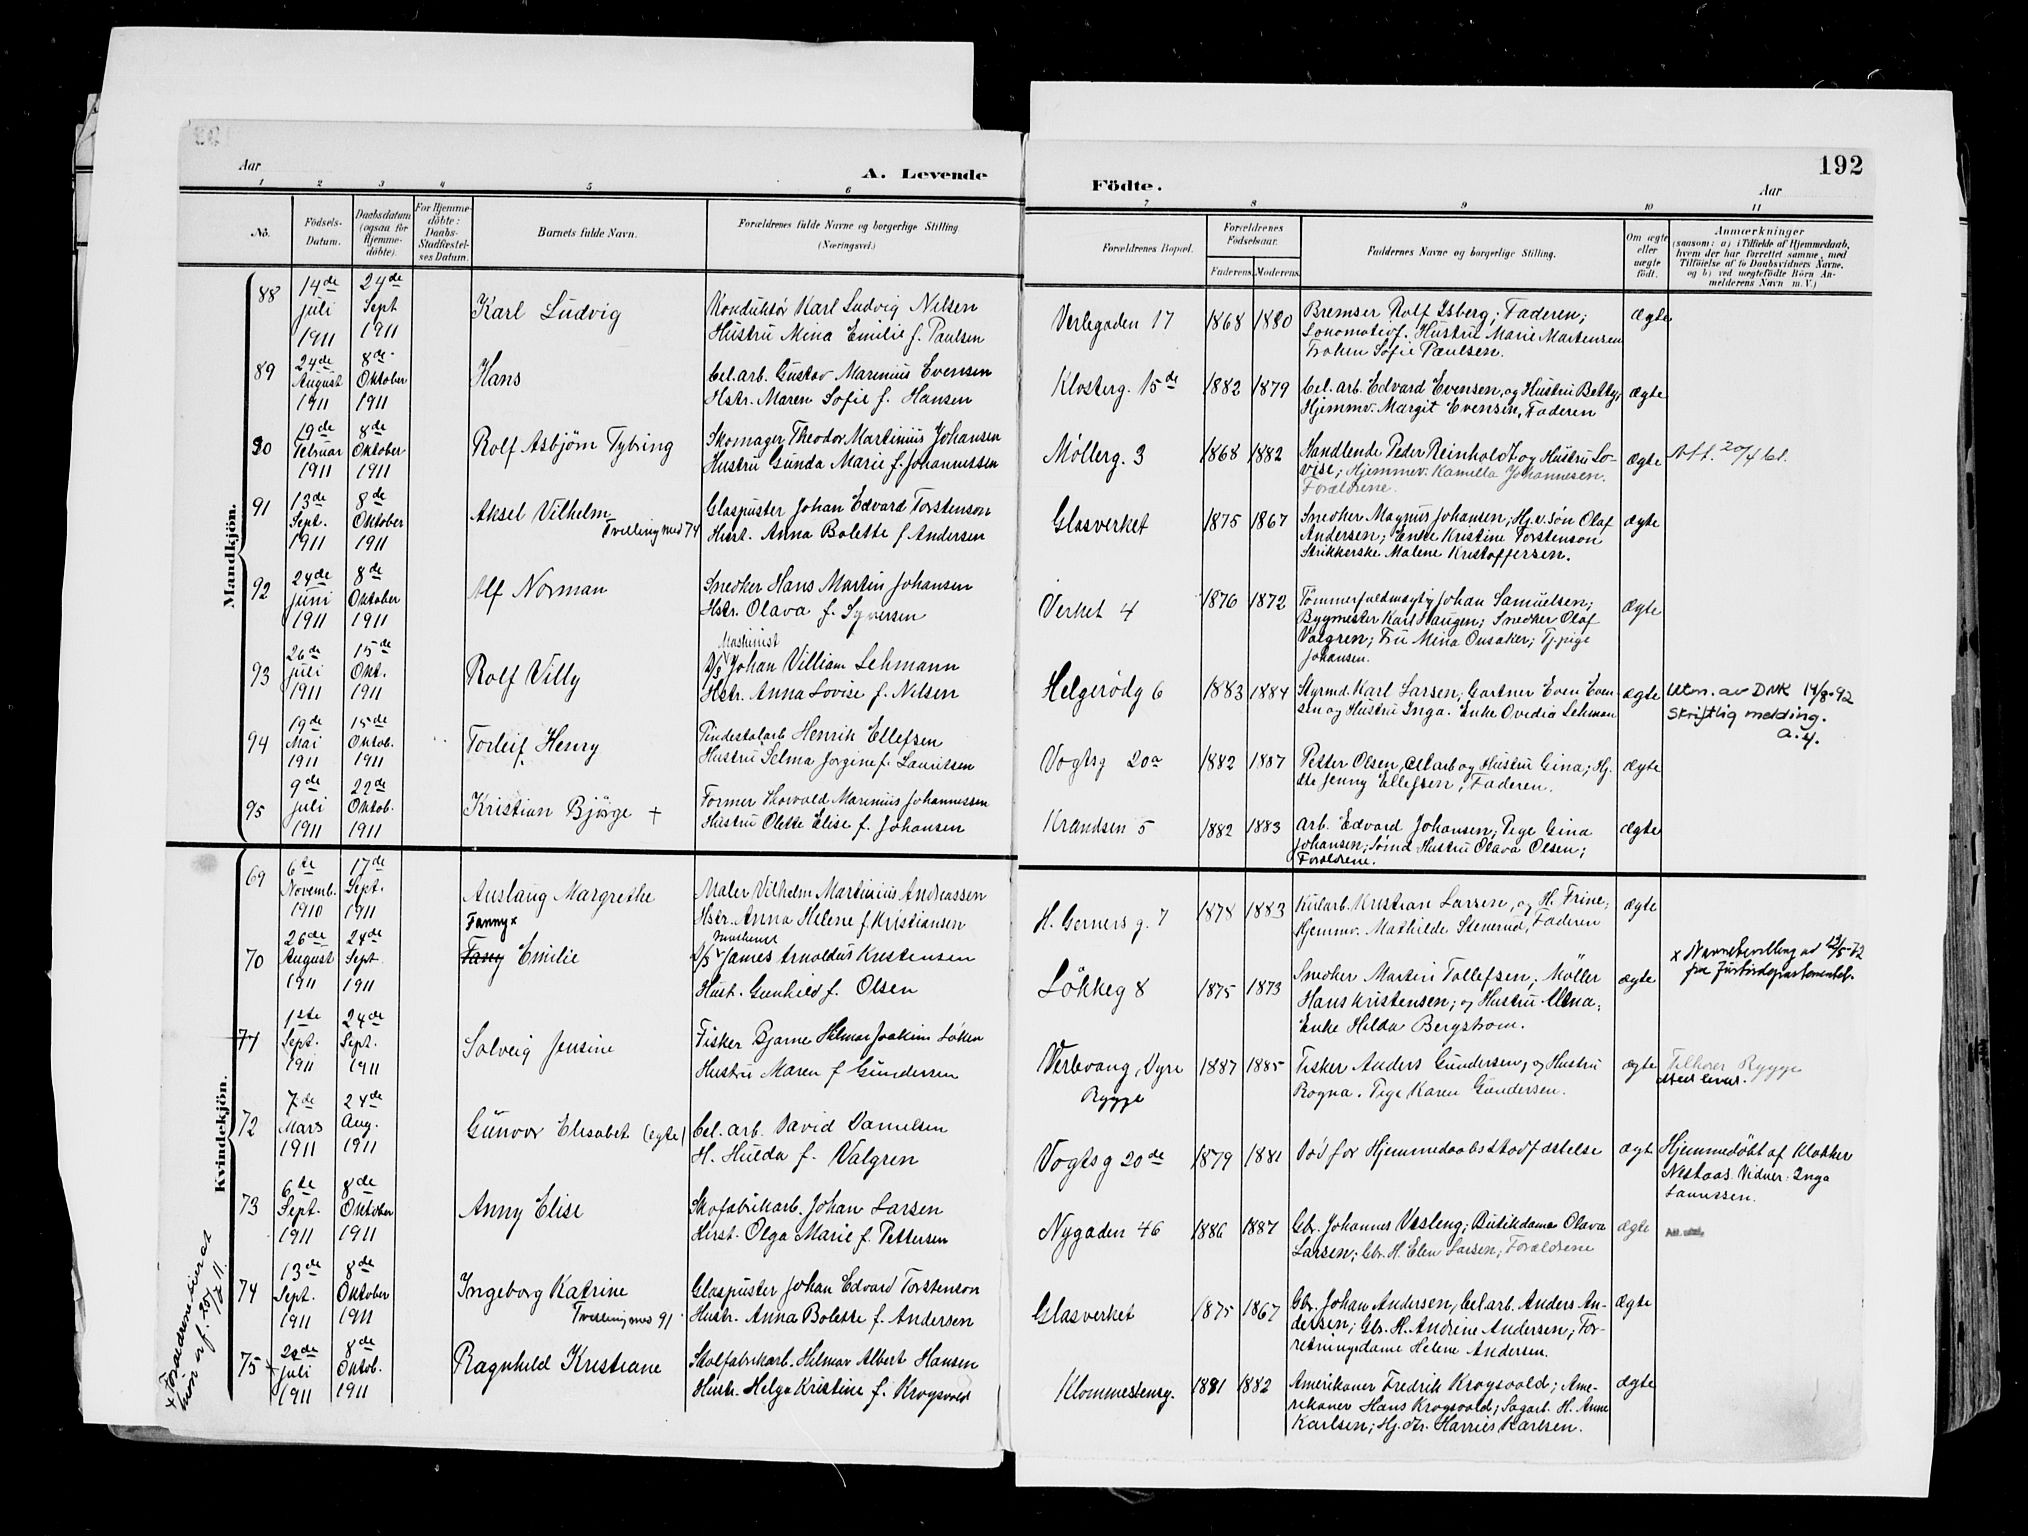 192
Aar
A. Levende
Födte.
Aar
1 2 3 4 5 6 7 8 9 10 11
No.
Födsels-
Datum.
Daabsdatum
(ogsaa for
Hjemme-
döbte).
For Hjemme-
döbte:
Daabs-
Stadfæstel-
ses Datum.
Barnets fulde Navn.
Forældrenes fulde Navne og borgerlige Stilling
(Næringsvei.)
Forældrenes Bopæl.
Forældrenes
Födselsaar.
Faderens. Moderens.
Faddernes Navne og borgerlige Stilling.
Om ægte
eller
uægte
födt.
Anmærkninger
(saasom: a) i Tilfælde af Hjemmedaab,
hvem der har forrettet samme, med
Tilföielse af to Daabsvidners Navne,
og b) ved uægtefödte Börn An-
melderens Navn m. V.)
Mandkjön.
88
14de
juli
1911
24de
Sept
1911
Karl Ludvig
Konduktör Karl Ludvig Nilsen
Hustru Mina Emilie f. Paulsen
Verlegaden 17
1868 1880
Bremser Rolf Isberg; Faderen;
Lokomotivf. Hustru Marie Martensen
Frøken Sofie Paulsen.
ægte
89
24de
August
1911
8de
Oktober
1911
Hans
Cel. arb. Gustav Marinius Evensen
Hstr. Maren Sofie f. Hansen
Klosterg. 15de
1882 1879
Cel. arb. Edvard Evensen, og Hustru Betty;
Hjemmv. Margit Evensen, Faderen
ægte
90
19de
Februar
1911
8de
Oktober
1911
Rolf Asbjørn Tybring
Skomager Theodor Martinius Johansen
Hustru Gunda Marie f. Johannessen
Møllerg. 3
1868 1882
Handlende Peder Reinholdt og Hustru Lo-
vise; Hjemmev. Kamilla Johannesen.
Forældrene.
ægte
Att. 20/4 61.
91
13de
Sept.
1911
8de
Oktober
1911
Aksel Vilhelm
Tvilling med 74
Glaspuster Johan Edvard Torstenson
Hust. Anna Bolette f Andersen
Glasverket
1875 1867
Snedker Magnus Johansen; Hj.v. Søn Olaf
Andersen; Enke Kristine Torstenson
Strikkerske Malene Kristoffersen.
ægte
92
24de
juni
1911
8de
Oktober
1911
Alf Norman
Snedker Hans Martin Johansen
Hstr. Olava f. Syversen
Verket 4
1876 1872
Tømmerfuldmægtig Johan Samuelsen;
Bygmester Karl Haugen; Snedker Olaf
Valgren; Fru Mina Ousaker; Tj.pige
Johansen.
ægte
93
26de
juli
1911
15de
Okt.
1911
Rolf Villy
Maskinist
D/S Johan Villiam Lehmann
Hstr. Anna Lovise f. Nilsen
Helgerödg 6
1883 1884
Styrmd. Karl Larsen; Gartner Even Even-
sen og Hustru Inga. Enke Ovedia Lehman
ægte
Utm. av DNK 14/8-92
Skriftlig melding.
a.4.
94
19de
Mai
1911
15de
Oktob.
1911
Torleif Henry
Pindestolarb Henrik Ellefsen
Hustru Selma Jorgine f. Lauritsen
Vogtsg 20a
1882 1887
Petter Olsen, Cel arb og Hustru Gina; Hj.
dtr Jenny Ellefsen; Faderen.
ægte
95
9de
juli
1911
22de
Oktob.
1911
Kristian Bjørge +
Former Thorvald Marinius Johannessen
Hustru Olette Elise f. Johansen
Krandsen 5
1882 1883
Arb. Edvard Johansen; Pige Gina
Johansen; Sømd Hustru Olava Olsen;
Forældrene.
ægte
Kvindekjön.
69
6te
Novemb.
1910
17de
Sept.
1911
Auslaug Margrethe
Maler Vilhelm Martinius Andreassen
Hstr. Anna Helene f. Kristiansen
H. Gerners g. 7
1878 1883
Kularb. Kristian Larsen, og H. Trine;
Hjemmv. Mathilde Stenerud, Faderen
ægte
70
26de
August
1911
24de
Sept
1911
Fanny x
Fany Emilie
Maskinist
D/S James Arnoldus Kristensen
Hust. Gunhild f. Olsen
Løkkeg 8
1875 1873
Snedker Martin Tollefsen; Møller
Hans Kristensen; og Hustru Elena;
Enke Hilda Bergstrøm.
ægte
x Navnebevilling av 12/5-72
fra Justisdepartementet.
71
1ste
Sept.
1911
24de
Sept.
1911
Solveig Jensine
Fisker Bjarne Hilmar Joakim Løken
Hustru Maren f Gundersen
Værlevang, Dyre
Rygge
1887 1885
Fisker Anders Gundersen, og Hustru
Ragna. Pige Karen Gundersen.
ægte
Tilhører Rygge
72
7de
Mars
1911
24de
Aug.
1911
Gunvor Elisabet (ægte)
Cel. arb. David Danielsen
H. Hulda f. Valgren
Vogtsg 20de
1879 1881
Død før Hjemmedaabsstadfæstelse
ægt
Hjemmedøbt af Klokker
Nestaas Vidner. Inga
Laurissen.
73
6te
Sept.
1911
8de
Oktober
1911
Anny Elise
Skofabrikarb. Johan Larsen
Hust. Olga Marie f. Pettersen
Nygaden 46
1886 1887
Gbr. Johannes Vasleng; Butikdame Olava
Larsen; Gbr. H. Elen Larsen; Forældrene
ægte
74
13de
Sept.
1911
8de
Oktober
1911
Ingeborg Katrine
Tvilling med 91
Glaspuster Johan Edvard Torstenson
Hustr. Anna Bolette f. Andersen
Glasverket
1875 1867
Gbr. Johan Andersen, Cel arb. Anders An-
dersen; Gbr. H. Andrine Andersen; For-
retningsdame Helene Andersen.
ægte
75 x
juli
1911
8de
Oktob.
1911
Ragnhild Kristiane
Stolfabrikarb. Hilmar Albert Hansen
Hustr. Helga Kristine f. Krogsvold
Klommestensg.
1881 1882
Amerikaner Fredrik Krogsvold; Ame-
rikaner Hans Krogsvold; Sagarb. H. Anne
Karlsen; Hj. dtr. Harriet Karlsen.
ægte
x Forældrene siver at
hun er f. 20/7 11.